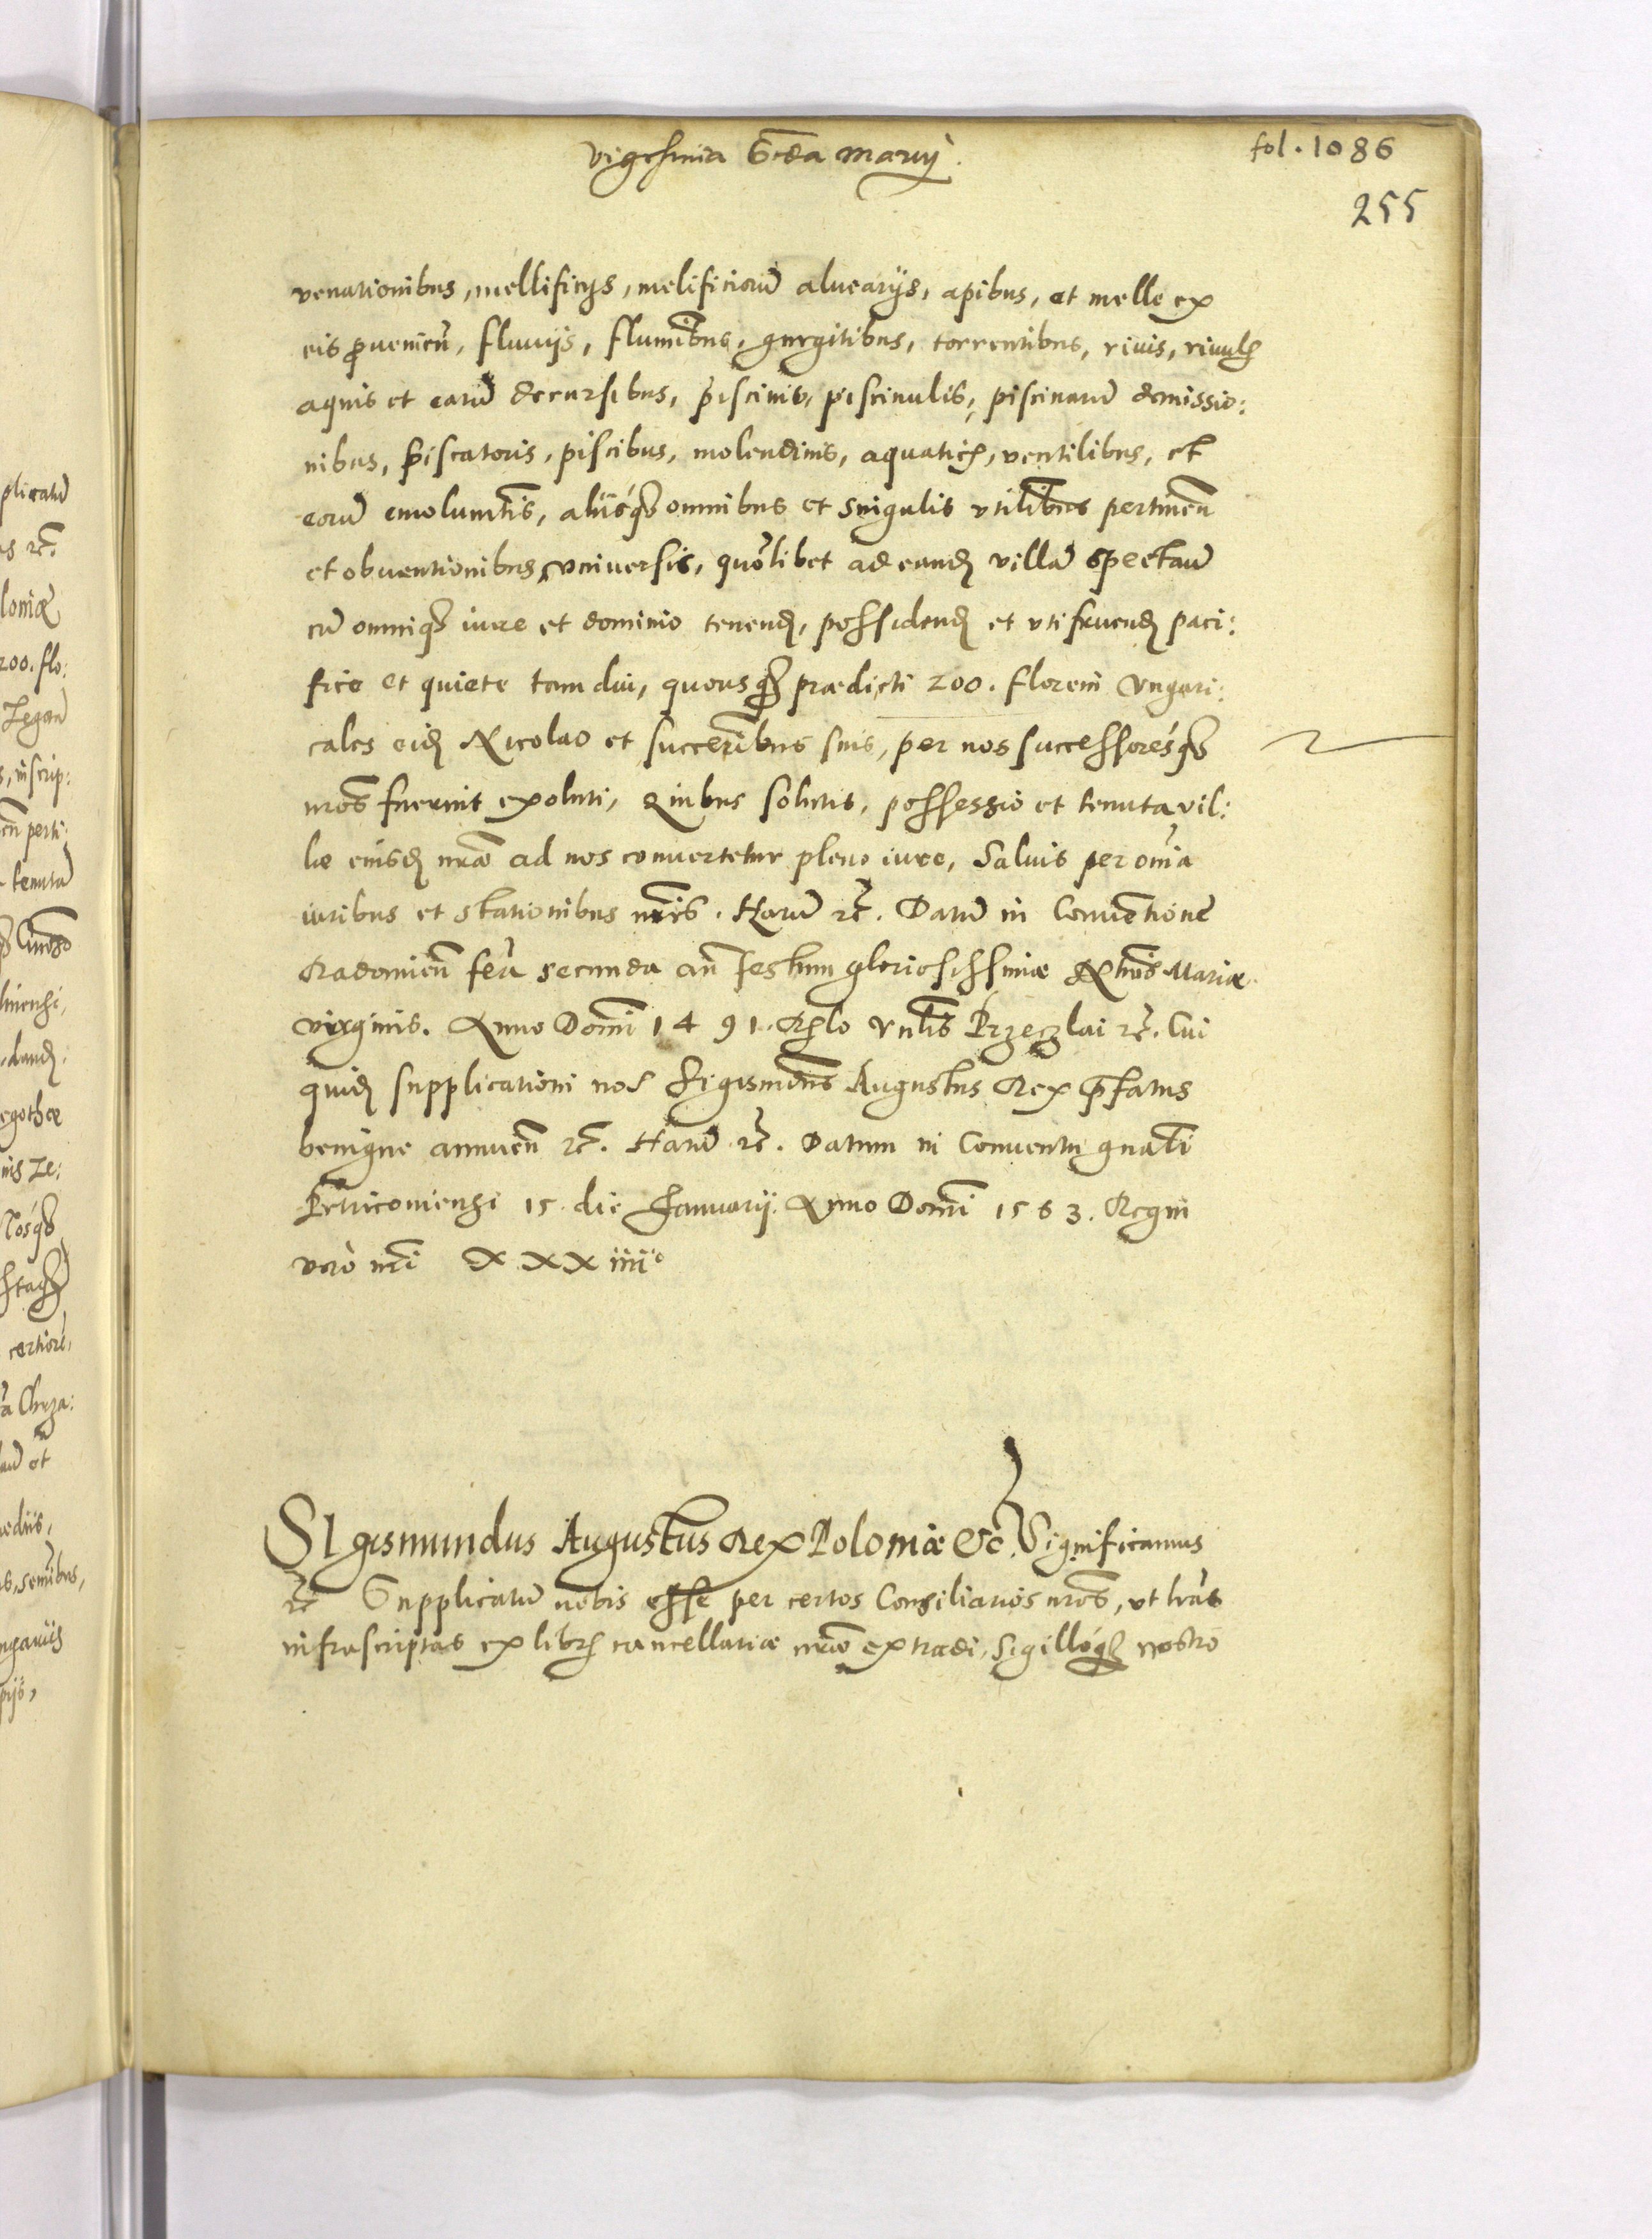 vigesima scda Marcij.
fol. 1086
255
venationibus, mellificijs, melificiorũ aluearijs, apibus, et melle ex
eis ꝓueniẽn, fluuijs, fluminibus, gurgitibus, torrentibus, riuis, riuulis
aquis et earũ decursibus, piscinis, piscinulis, piscinarũ demissio:
nibus, piscatoris, piscibus, molendinis, aquaticis, ventilibus, et
eorũ emolumtis, alijsqʒ omnibus et singulis vtilibus pertineñ
et obuentionibus vniuersis, quolibet ad eandẽ villã spectañ
cũ omniqʒ iure et dominio tenenđ, possidenđ et vtifruenđ paci:
fice et quiete tam diu, quousqʒ prædicti 200. floreni Vngari:
cales eidẽ Nicolao et succeribus suis, per nos successoresqʒ
nros fuerint exoluti, Quibus solutis, possessio et tenuta vil:
læ eiusdẽ nræ ad nos conuertetur pleno iure, Saluis per oĩa
iuribus et stationibus nris. Harũ rc̃. Datũ in Conuentione
Radomieñ feria secunda añ Festum gloriosissimæ Xtinis Mariæ
virginis. Anno Domi 1491. Rglo Vnlis Przeczlai rc̃. Cui
quidẽ supplicationi nos Sigismũdus Augustus Rex p̃fatus
benigne annueñ rc̃. Harũ rc̃. Datum in Conuentu gnali
Petricouiensi 15. die Januarij. Anno Domi 1563. Regni
vero nri XXXiiii°
SIgismundus Augustus Rex Poloniæ &c. Significamus
rc̃ Supplicatũ nobis esse per certos Consiliarios nros, vt lras
infrascriptas ex libris cancellariæ nræ extradi, sigilloqʒ nostro
plicatũ
as rc̃.
loniæ
200. flo:
Zegan
s, inscrip:
eñ perti:
tenuta
linensi,
danđ.
egothæ
nis Ze:
certiore,
a Chrza:
et
ediis,
is, semibus,
ngariis
pijs,